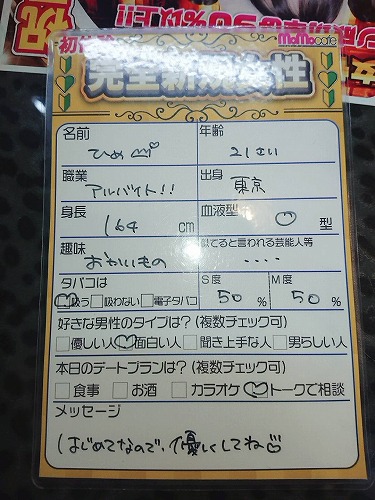 祝
初
momocafe
完全新規女性
名前
ひめ
年齢
21さい
職業
アルバイト!!
出身
東京
身長
164 cm
血液型
O 型
趣味
おかいもの
似てると言われる芸能人等
・・・・
タバコは
吸う 吸わない 電子タバコ
S度
50 %
M度
50 %
好きな男性のタイプは?(複数チェック可)
優しい人 面白い人 聞き上手な人 男らしい人
本日のデートプランは?(複数チェック可)
食事 お酒 カラオケ トークで相談
メッセージ
はじめてなので、優しくしてね